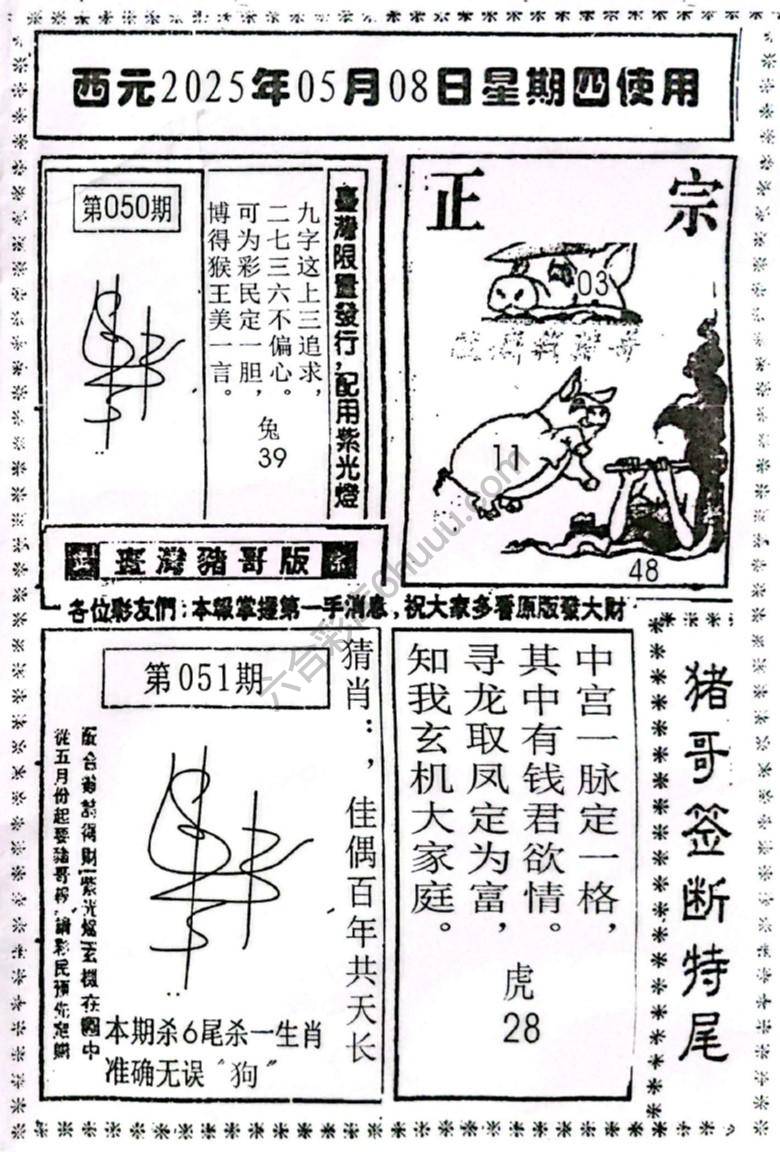 西元2025年05月08日星期四使用
第050期
九字这上三追求，
二七三六不偏心。
可为彩民定一胆，
博得猴王美一言。
兔
39
臺灣限量發行，配用紫光燈
正 宗
03
11
48
臺灣豬哥版
各位彩友們：本報掌握第一手消息，祝大家多看原版發大財
第051期
猜肖：，佳偶百年共天长
本期杀6尾杀一生肖
准确无误“狗”
中宫一脉定一格，
其中有钱君欲情。
寻龙取凤定为富，
知我玄机大家庭。
虎
28
猪哥签断特尾
六合彩店6huuu.com